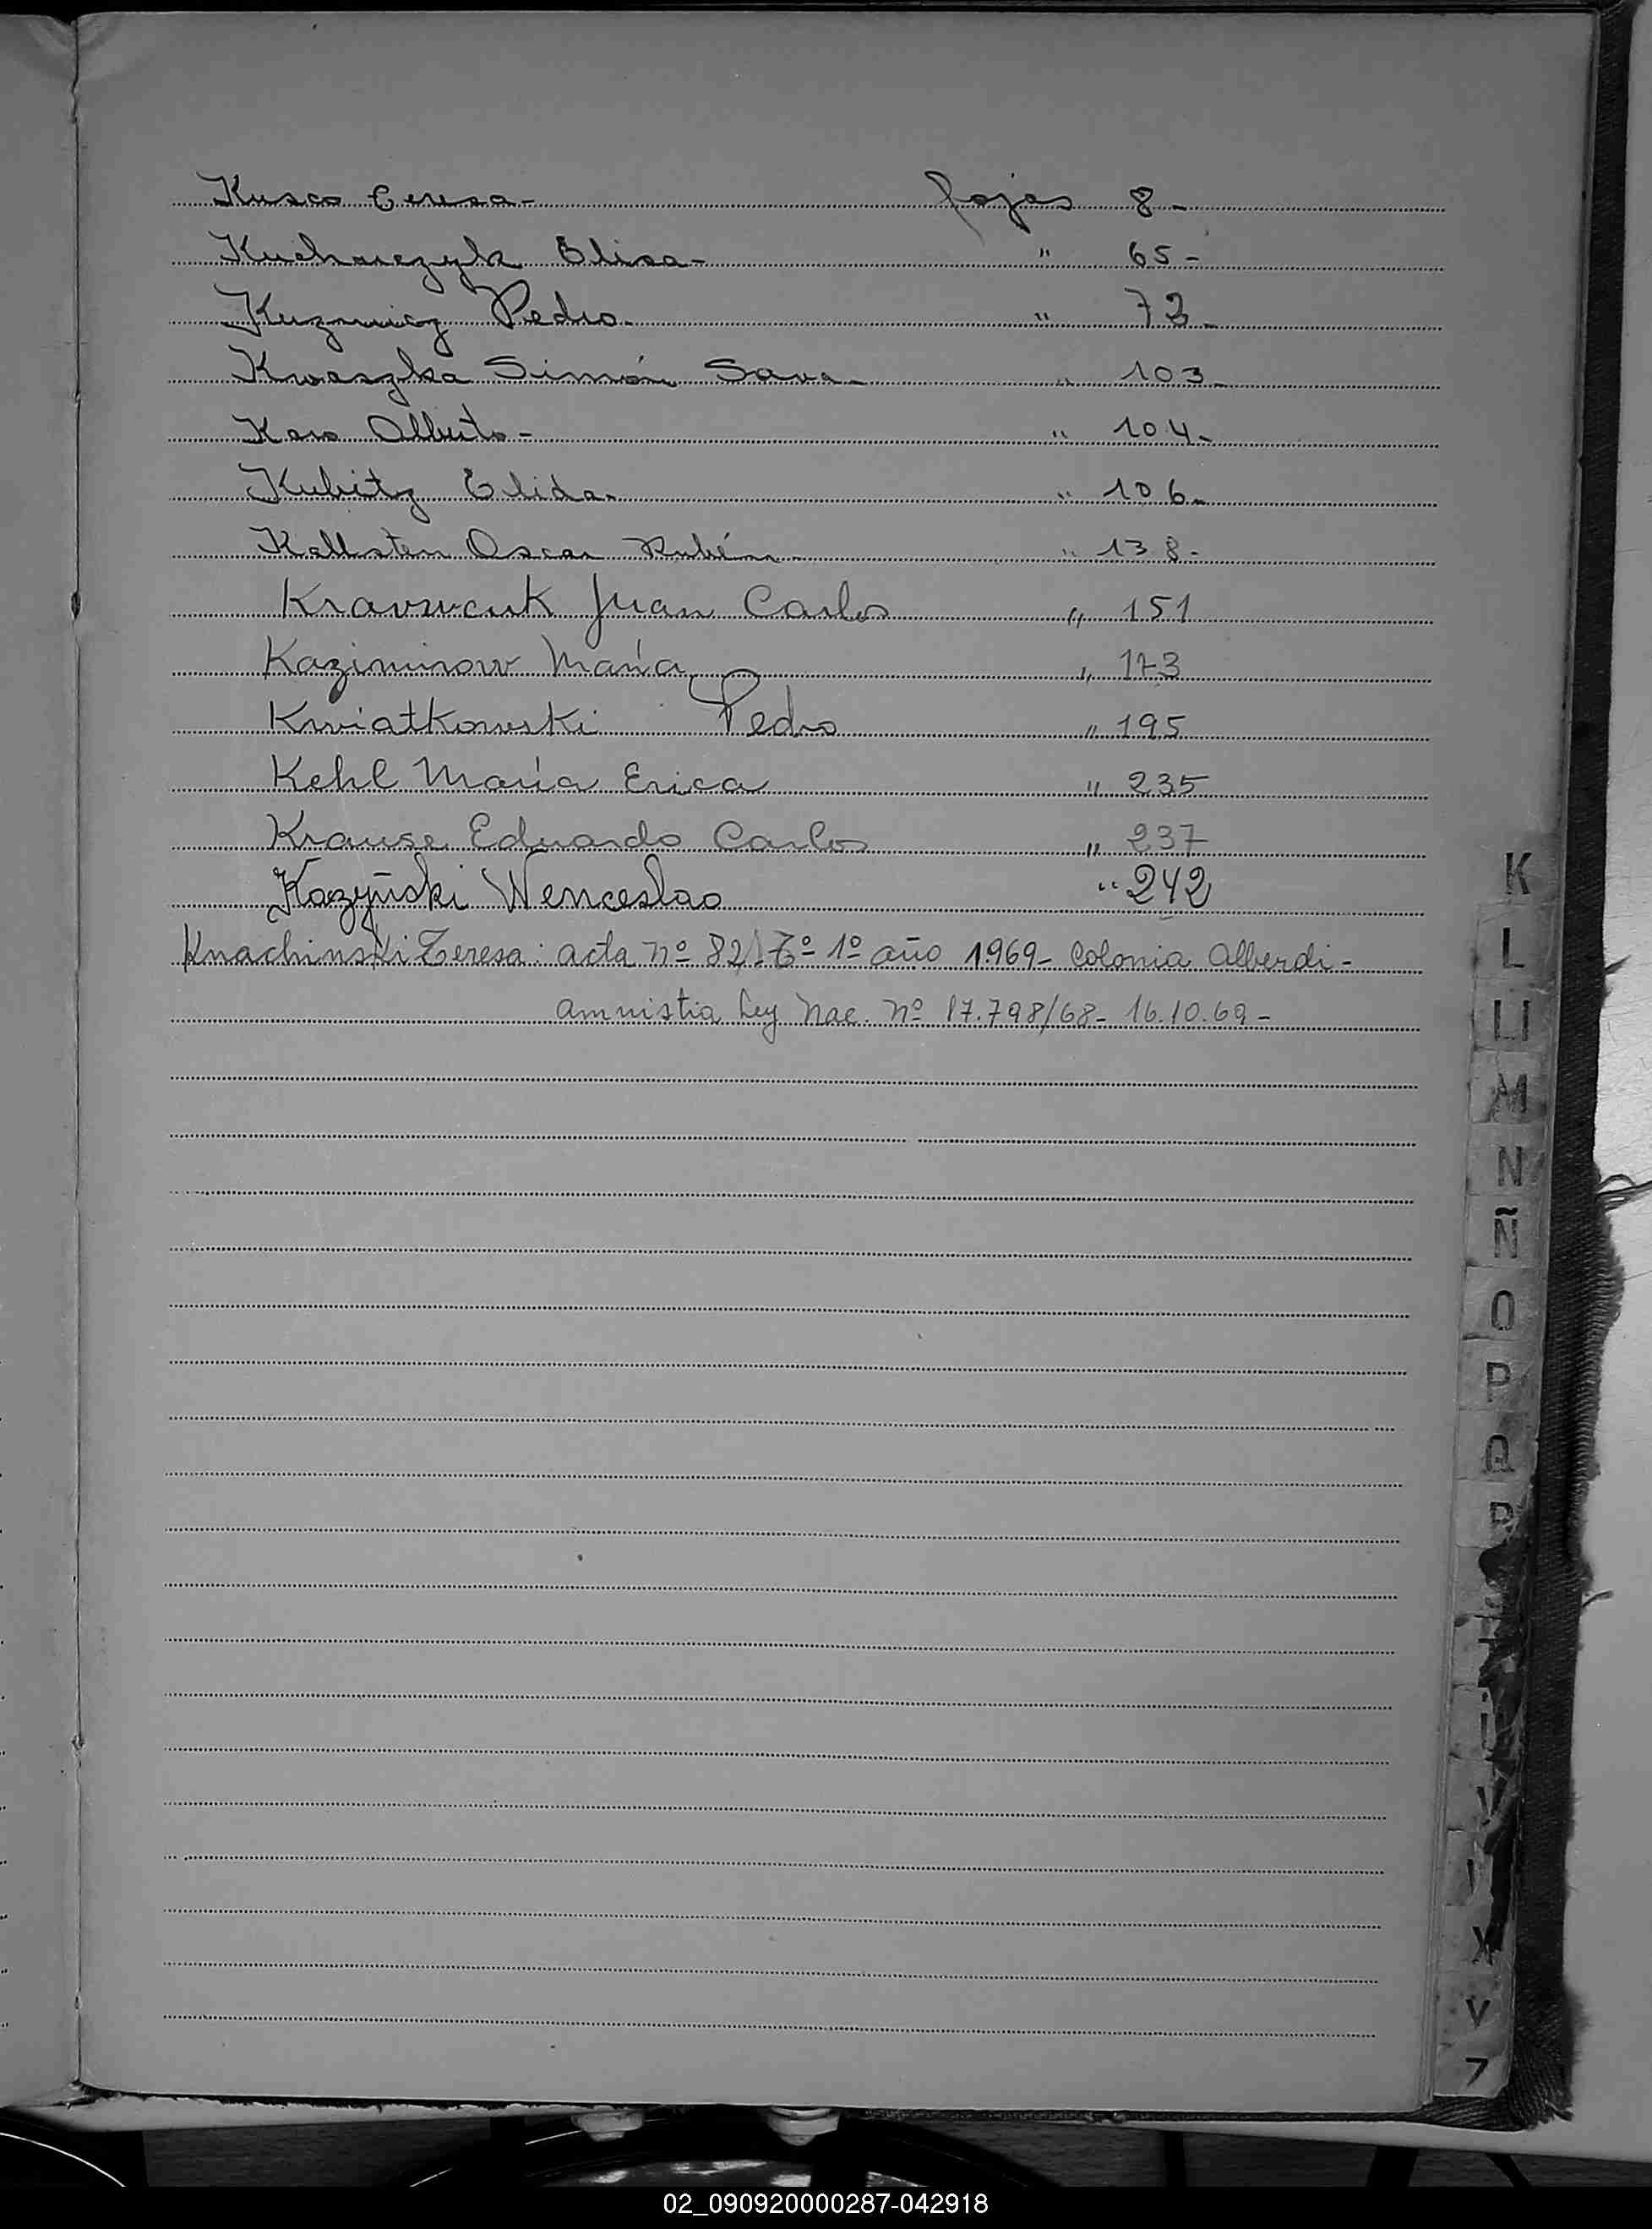 Kusco Teresa- fojas 8-
Kucharczyk Elisa- " 65-
Kuzmicz Pedro- " 72-
Kwaszka Simón Sava- " 103-
Kaso Alberto- " 104-
Kubitz Elida- " 106-
Kallsten Oscar Rubén- " 138-
Kravzvcuk Juan Carlos " 151
Kazimirow María " 173
Kwiatkowski Pedro " 195
Kehl María Erica " 235
Krause Eduardo Carlos " 237
Kozyñski Wenceslao " 242
Knachinski Teresa: acta nº 82 Tº 1º año 1969- Colonia Alberdi-
amnistia Ley Nac. nº 17.798/68- 16.10.69-
K
L
Ll
M
N
Ñ
O
P
Q
R
T
U
V
X
Y
Z
02_090920000287-042918